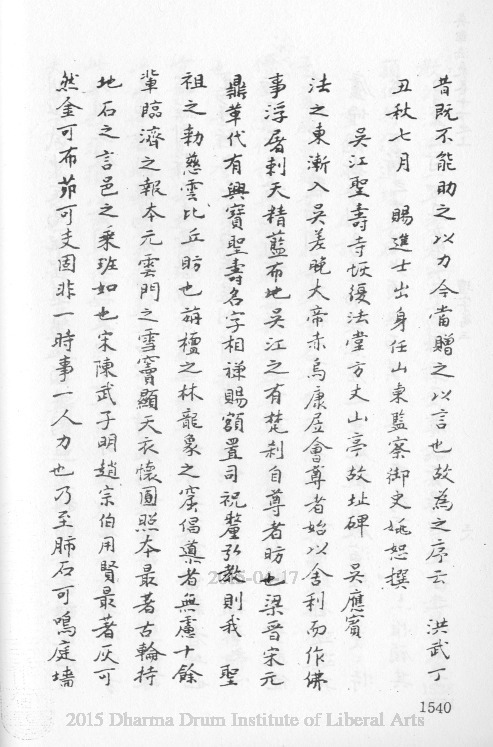 昔既不能助之以力今當贈之以言也故為之序云　洪武丁
丑秋七月　賜進士出身任山東監察御史姚恕撰
吳江聖壽寺恢復法堂方丈山亭故址碑　吳應賓
法之東漸入吳差晚大帝赤烏康居會尊者始以舍利而作佛
事浮屠剌天精藍布地吳江之有梵剎自尊者昉也梁晉宋元
鼎革代有興寶聖壽名字相禪賜額置司祝釐弘教則我　聖
祖之勅慈雲比丘昉也旃檀之林龍象之窟倡導者無慮十餘
輩臨濟之報本元雲門之雪竇顯天衣懷圓照本最著古輪持
地石之言邑之乘班如也宋陳武子明趙宗伯用賢最著灰可
然金可布茆可支固非一時事一人力也乃至肺石可鳴庭墻
1540
2015 Dharma Drum Institute of Liberal Arts